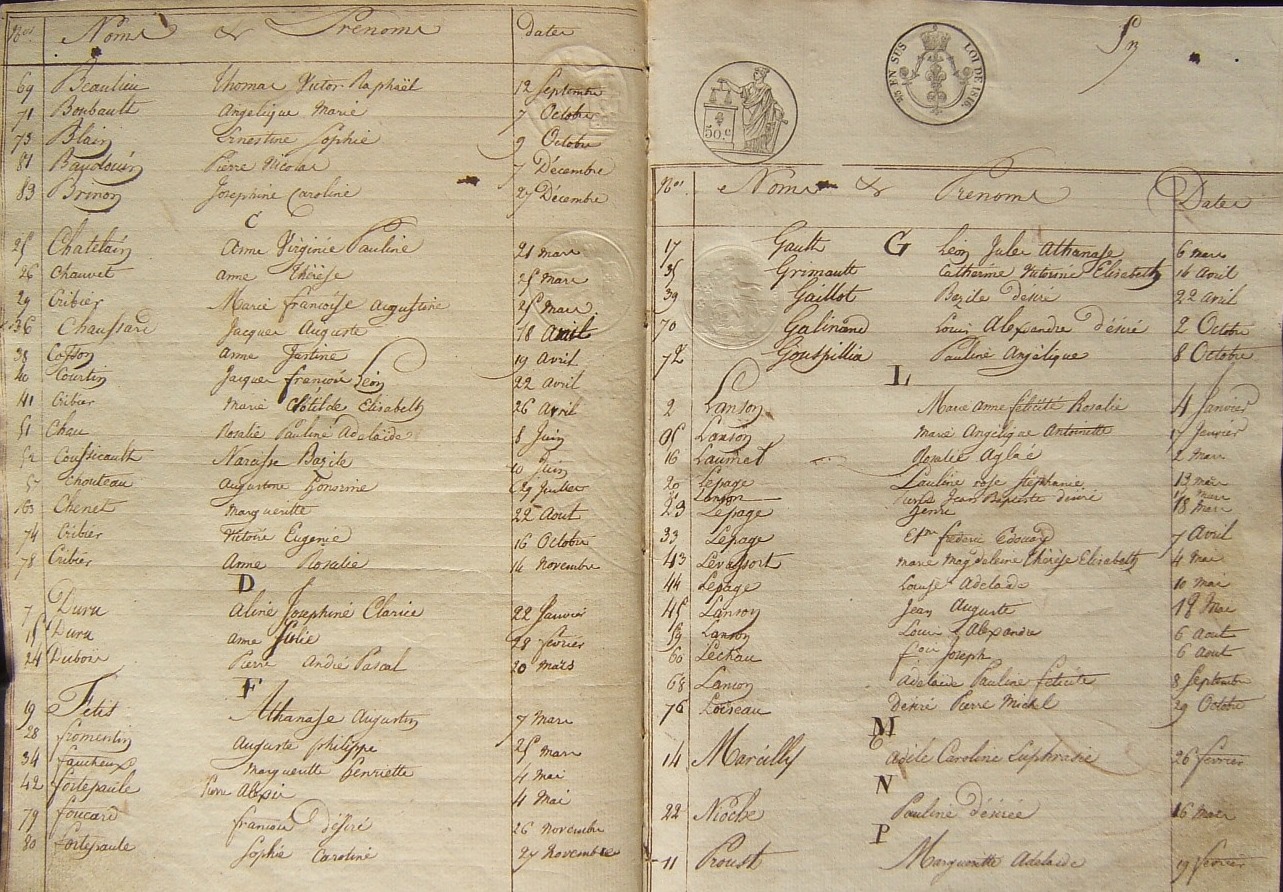 Nos. Noms & Prénoms Dates
69 Beaulieu Thomas Victor Raphaël 12 Septembre
71 Boubault Angelique Marie 7 Octobre
73 Blain Ernestine Sophie 9 Octobre
81 Baudouin Pierre Nicolas 7 Décembre
89 Brinon Josephine Caroline 27 Décembre
C
25 Chatelain Anne Virginie Pauline 21 mars
26 Chauvet anne Thérèse 25 mars
29 Cribier Marie françoise Augustine 25 mars
36 Chaussard Jacques Auguste 18 Avril
38 Cosson anne Justine 19 Avril
40 Courtin Jacques françois Léon 22 avril
41 Cribier Marie Clôtilde Elisabeth 26 Avril
51 Chau Rosalie Pauline Adelaïde 8 Juin
52 Coussicault Narcisse Bazile 10 Juin
57 Chouteau Augustine Honorine 29 Juillet
63 Chenet marguerite 22 Aout
74 Cribier Victoire Eugenie 16 Octobre
78 Cribier Anne Rosalie 14 Novembre
D
7 Duru Aline Josephine Clarice 22 Janvier
15 Duru anne Julie 28 fevrier
24 Dubois Pierre André Pascal 20 mars
F
19 Fetis Athanase Augustin 7 Mars
28 fromentin Auguste philippe 25 mars
34 faucheux Marguerite henriette 4 mai
42 fortepaule Pierre Alexis 4 Mai
79 foucard françois désiré 26 novembre
80 fortepaule Sophie Caroline 27 Novembre
50.c
25 EN SUS LOI DE 1816
Nos. Noms & Prenoms Dates
G
17 Gault Leon Jules Athanase 6 mars
35 Grimault Catherine Victorine Elisabeth 16 avril
39 Gaillot Bazile désiré 22 avril
70 Galinand Louis Alexandre désiré 2 Octobre
72 Gouspillia Pauline Angélique 8 Octobre
L
2 Lanson Marie anne félicité Rosalie 4 Janvier
Lanson marie Angélique Antoinette 17 fevrier
16 Laumet Rosalie Aglaé 2 mars
20 Lepage Pauline rose Stéphanie 13 mars
21 Lanson Jean Baptiste désiré 17 mars
23 Lepage Henri 18 Mars
33 Lepage Etne fréderic Edouard 7 Avril
43 Levassort marie magdeleine Thérèse Elisabeth 4 mai
44 Lepage Louise Adelaide 10 mai
45 Lanson Jean Auguste 18 Mai
Lanson Louis Alexandre 6 aout
60 Lechau fois Joseph 6 aout
68 Lanson Adelaide Pauline félicité 8 Septembre
76 Loiseau Désiré Pierre Michel 29 Octobre
M
14 Marcilly Adèle Caroline Euphrasie 26 fevrier
N
22 Nioche Pauline désirée 16 mars
P
11 Proust Marguerite Adelaide 19 fevrier